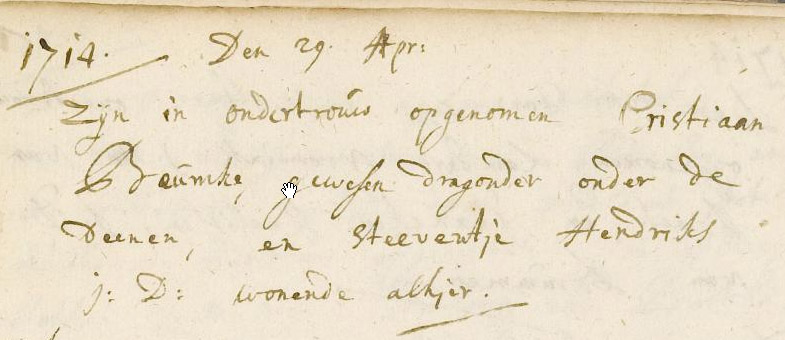 1714. Den 29. Apr:
Zijn in ondertrouw opgenomen Cristiaan
Beumke, gewesen dragonder onder de
Deenen, en Steeventje Hendriks
j: D: wonende alhier.